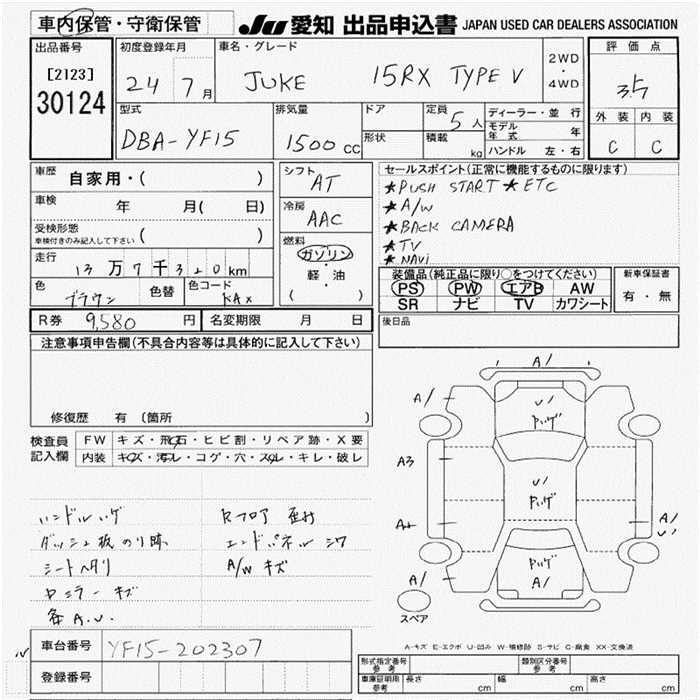 車内保管・守衛保管
JU 愛知 出品申込書 JAPAN USED CAR DEALERS ASSOCIATION
出品番号 初度登録年月 車名・グレード 評価点
[2123] 24 7月 JUKE 15RX TYPE V 2WD・4WD 3.5
30124
型式 排気量 ドア 定員 5人 ディーラー・並行 外装 内装
DBA-YF15 1500cc 形状 積載 kg モデル年式 年 C C
ハンドル 左・右
車歴 自家用・( ) シフト AT セールスポイント(正常に機能するものに限ります)
★PUSH START ★ETC
車検 年 月( 日) 冷房 AAC ★A/W
受検形態 ( ) ★BACK CAMERA
車検付きのみ記入して下さい 燃料 ★TV
走行 13万7千320km ガソリン ★NAVi
軽・油 装備品(純正品に限り○をつけてください) 新車保証書
色 ブラウン 色替 色コード KAX ( ) PS PW エアB AW 有・無
SR ナビ TV カワシート
R券 9,580円 名変期限 月 日 後日品
注意事項申告欄(不具合内容等は具体的に記入して下さい)
修復歴 有 (箇所 )
検査員記入欄 FW キズ・飛石・ヒビ割・リペア跡・X要
内装 キズ・汚レ・コゲ・穴・スレ・キレ・破レ
ハンドルハゲ
ダッシュ板のり跡 エンドパネル シワ
シートヘタリ A/W キズ
キズ
各A.U.
A/
A/ U/
ハゲ
A3 U/
ハゲ
A2 A/
U/
ハゲ
A/ A/
スペア
A-キズ E-エクボ U-凹み W-補修跡 S-サビ C-腐食 XX-交換済
車台番号 YF15-202307
登録番号
形式指定番号 参考 類別区分番号 参考
車庫証明用 参考 長さ cm 幅 cm 高さ cm